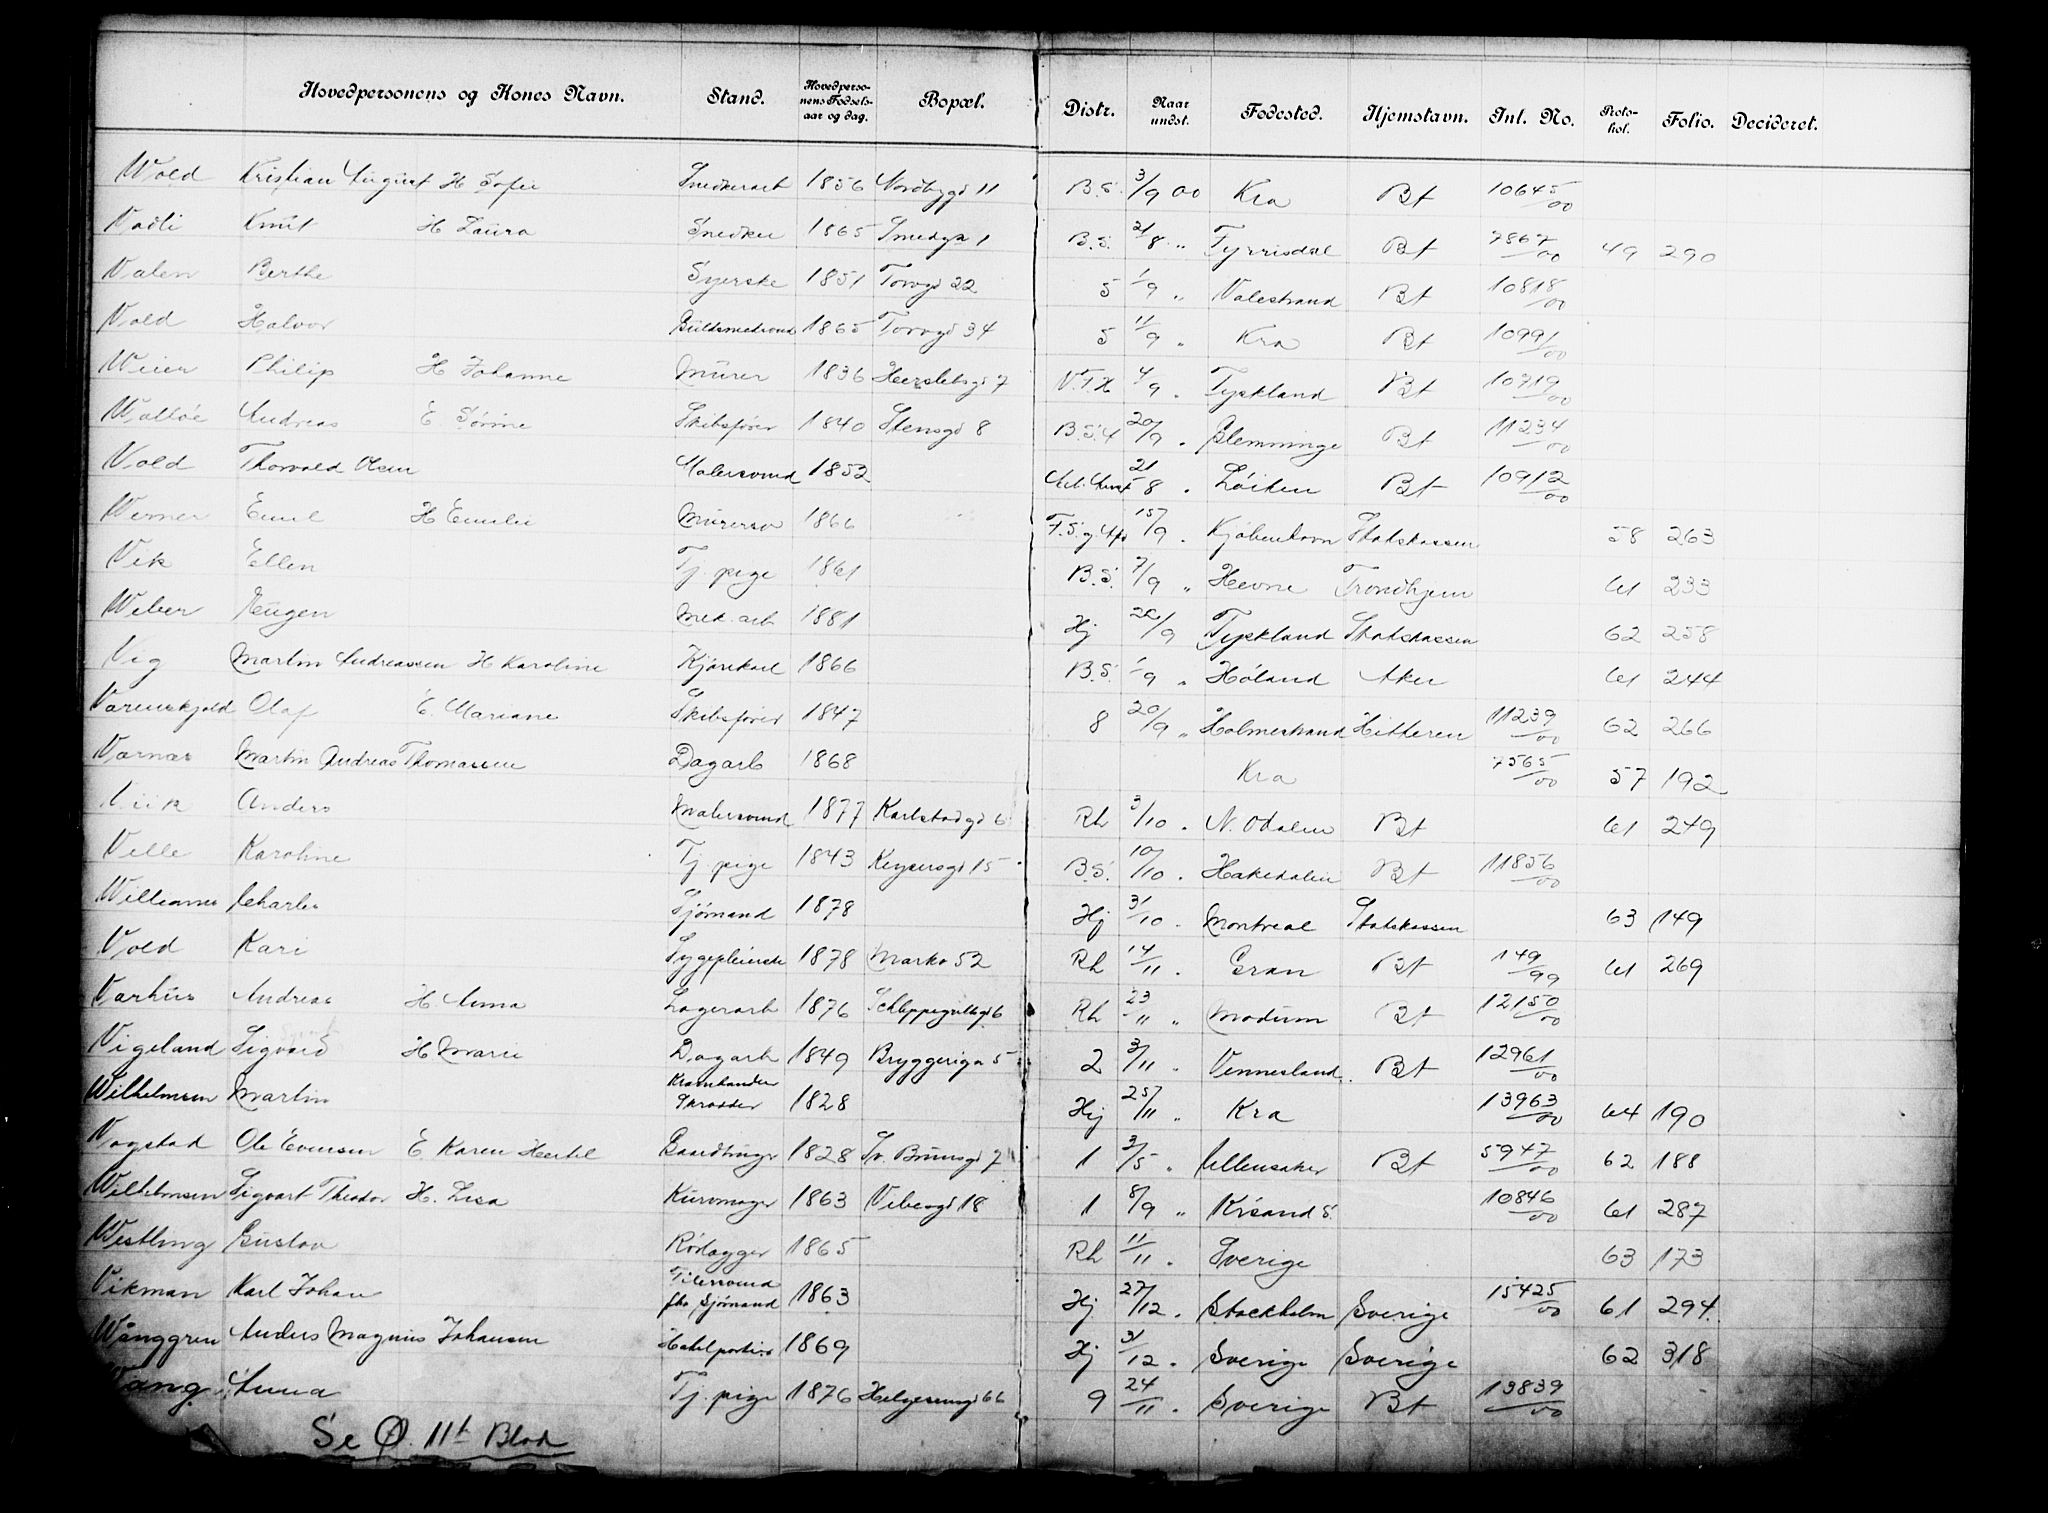 Hovedpersonens og Kones Navn. Stand. Hovedpersonens Fødselsaar og dag. Bopæl. Distr. Naar undst. Fødested. Hjemstavn. Jnl. No. Protokol. Folio. Decideret.
Wold Kristian August H Sofie Snedkerarb 1856 Nordbygd 11 B.S. 3/9 00 Kra Bt 10645/00
Vadli Knut H Laura Snedker 1865 Smedga 1 B.S. 21/8 " Tyrrisdal Bt 7867/00 49 290
Valen Berthe Syerske 1851 Torvgd 22 5 1/9 " Valestrand Bt 10818/00
Vold Halvor Guldsmedsvend 1865 Torvgd 34 5 11/9 " Kra Bt 10991/00
Weier Philip H Johanne Murer 1836 Herslebsgd 7 V.F.H 4/9 " Tyskland Bt 10719/00
Walløe Andreas E. Sørine Skibsfører 1840 Stensgd 8 B.S.4 20/9 " Slemminge Bt 11234/00
Vold Thorvald Olsen Malersvend 1852 21/8 " Løiten Bt 10912/00
Werner Emil H Emilie Murersv 1866 15/9 " Kjøbenhavn Statskassen 58 263
Vik Ellen Tj. pige 1861 B.S. 7/9 " Hevne Trondhjem 61 233
Weber Eugen Mek. arb 1881 Hj 26/9 Tyskland Statskassen 62 258
Vig Martin Andreassen H Karoline Kjørekarl 1866 B.S. 1/9 " Høland Aker 61 244
Varenskjold Olaf E. Mariane Skibsfører 1847 8 20/9 " Holmestrand Hitteren 11239/00 62 266
Varnas Martin Andreas Thomassen Dagarb 1868 Kra 7565/00 57 192
Viik Anders Malersvend 1877 Karlstadgd 6 Rh 3/10 " N. Odalen Bt 61 249
Velle Karoline Tj. pige 1843 Keysersgd 15 B.S. 10/10 " Hakedalen Bt 11856/00
Williams Charles Sjømand 1878 Hj 31/10 " Montreal Statskassen 63 149
Vold Kari Sygepleierske 1878 Markv 52 Rh 14/11 " Gran Bt 149/99 61 269
Varhus Andreas H Anna Lagerarb 1876 Schleppegrellsgd 6 Rh 23/11 " Modum Bt 12150/00
Vigeland Sigvard H Marie Dagarb 1849 Bryggeriga 5 2 3/11 " Vennesland Bt 12961/00
Wilhelmsen Martin Kramhandler Skrædder 1828 Hj 25/11 " Kra 13963/00 64 190
Vogstad Ole Evensen E. Karen Hertel Gaardbruger 1828 Sv. Brunsgd 7 1 3/5 " Ullensaker Bt 5947/00 62 188
Wilhelmsen Sigvart Theodor H. Lisa Kurvmager 1863 Vibesgd 18 1 8/9 " Krsand S. 10846/00 61 287
Westling Gustav Rørlægger 1865 Rh 11/11 " Sverige 63 173
Vikman Karl Johan Filersvend fhv Sjømand 1863 Hj 27/12 " Stockholm Sverige 15425/00 61 294.
Wånggren Anders Magnus Johansen Hotelportier 1869 Hj 31/12 " Sverige Sverige 62 318
Wang Anna Tj. pige 1876 Helgesensgd 66 9 24/11 " Sverige Bt 13839/00
Se Ø. 11t Blad